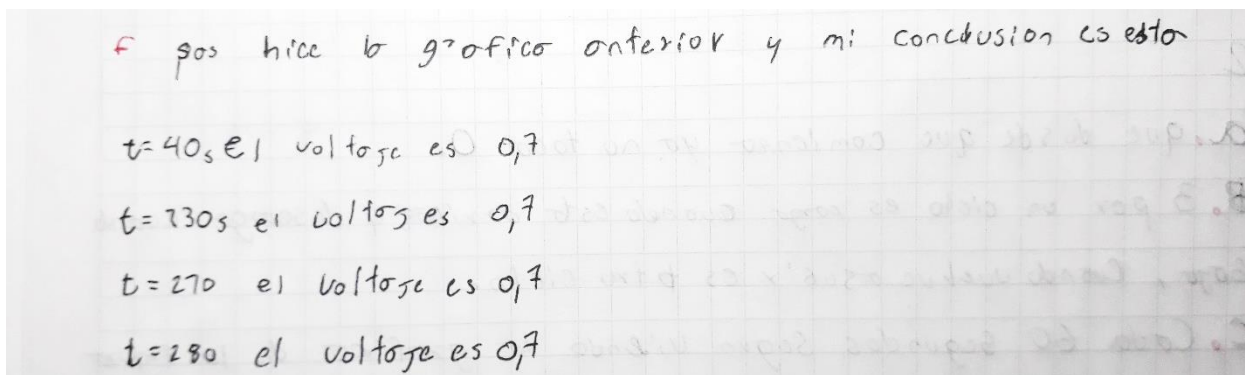 f pos hice lo grafico anterior y mi conclusion es esto
t=40s El voltaje es 0,7
t=130s el voltajes 0,7
t=270 el voltaje es 0,7
t=280 el voltaje es 0,7